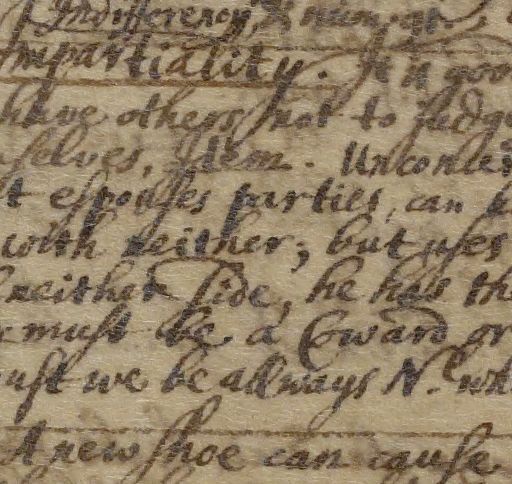 Indifferency, &
mpartiality. It is goo
have others not to Judge
selves, Idem. Unconcer
t espouses parties, can
with neither; but uses
neither side, he has the
must be a Coward or
ust we be allways N.
A new shoe can cause